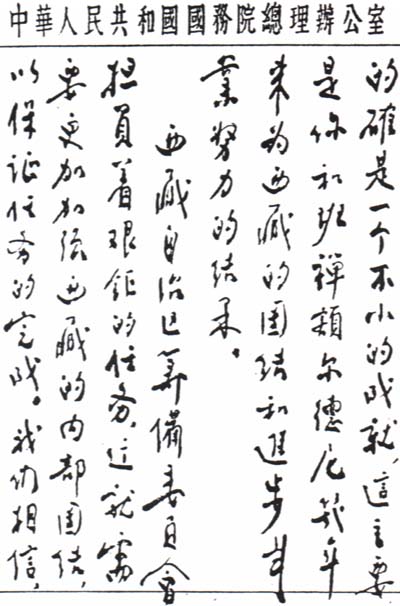 中華人民共和國國務院總理辦公室
的確是一个不小的成就，這主要
是你和班禪額尔德尼几年
来为西藏的团结和進步事
業努力的结果。
西藏自治区筹備委員會
担負着艰鉅的任务，这就需
要更加加強西藏的内部团结，
以保证任务的完成。我们相信，